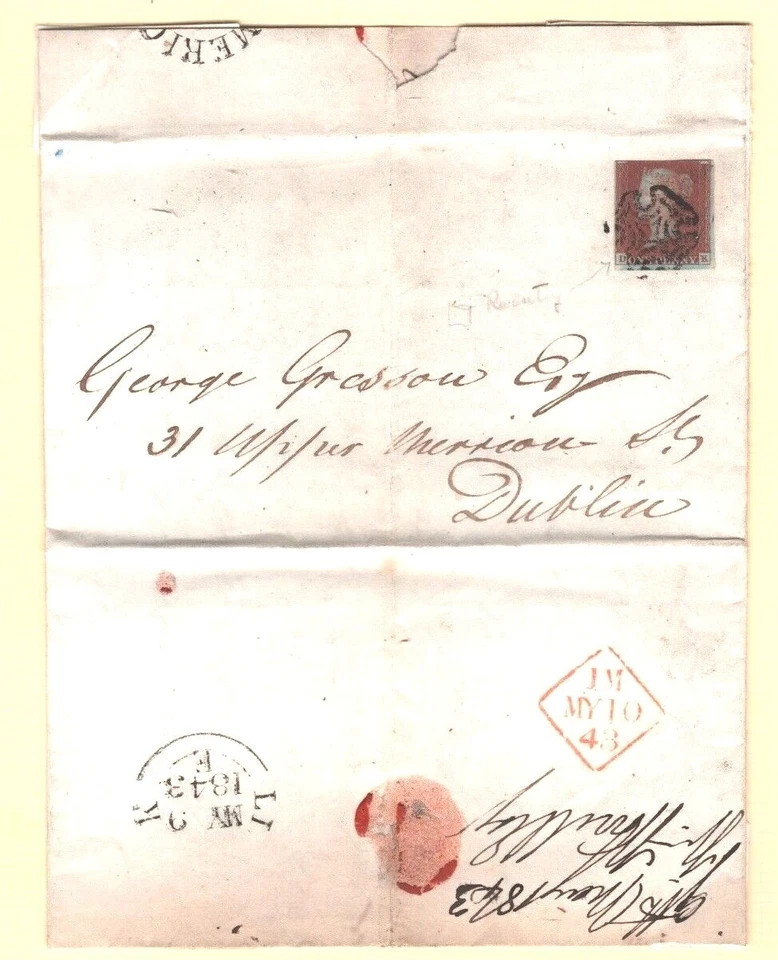 MERIC
D ONE PENNY K
George Gresson Esq
31 Upper Merrion St
Dublin
1M
MY10
43
LI K
MY 9
1843
E
9th May 1843